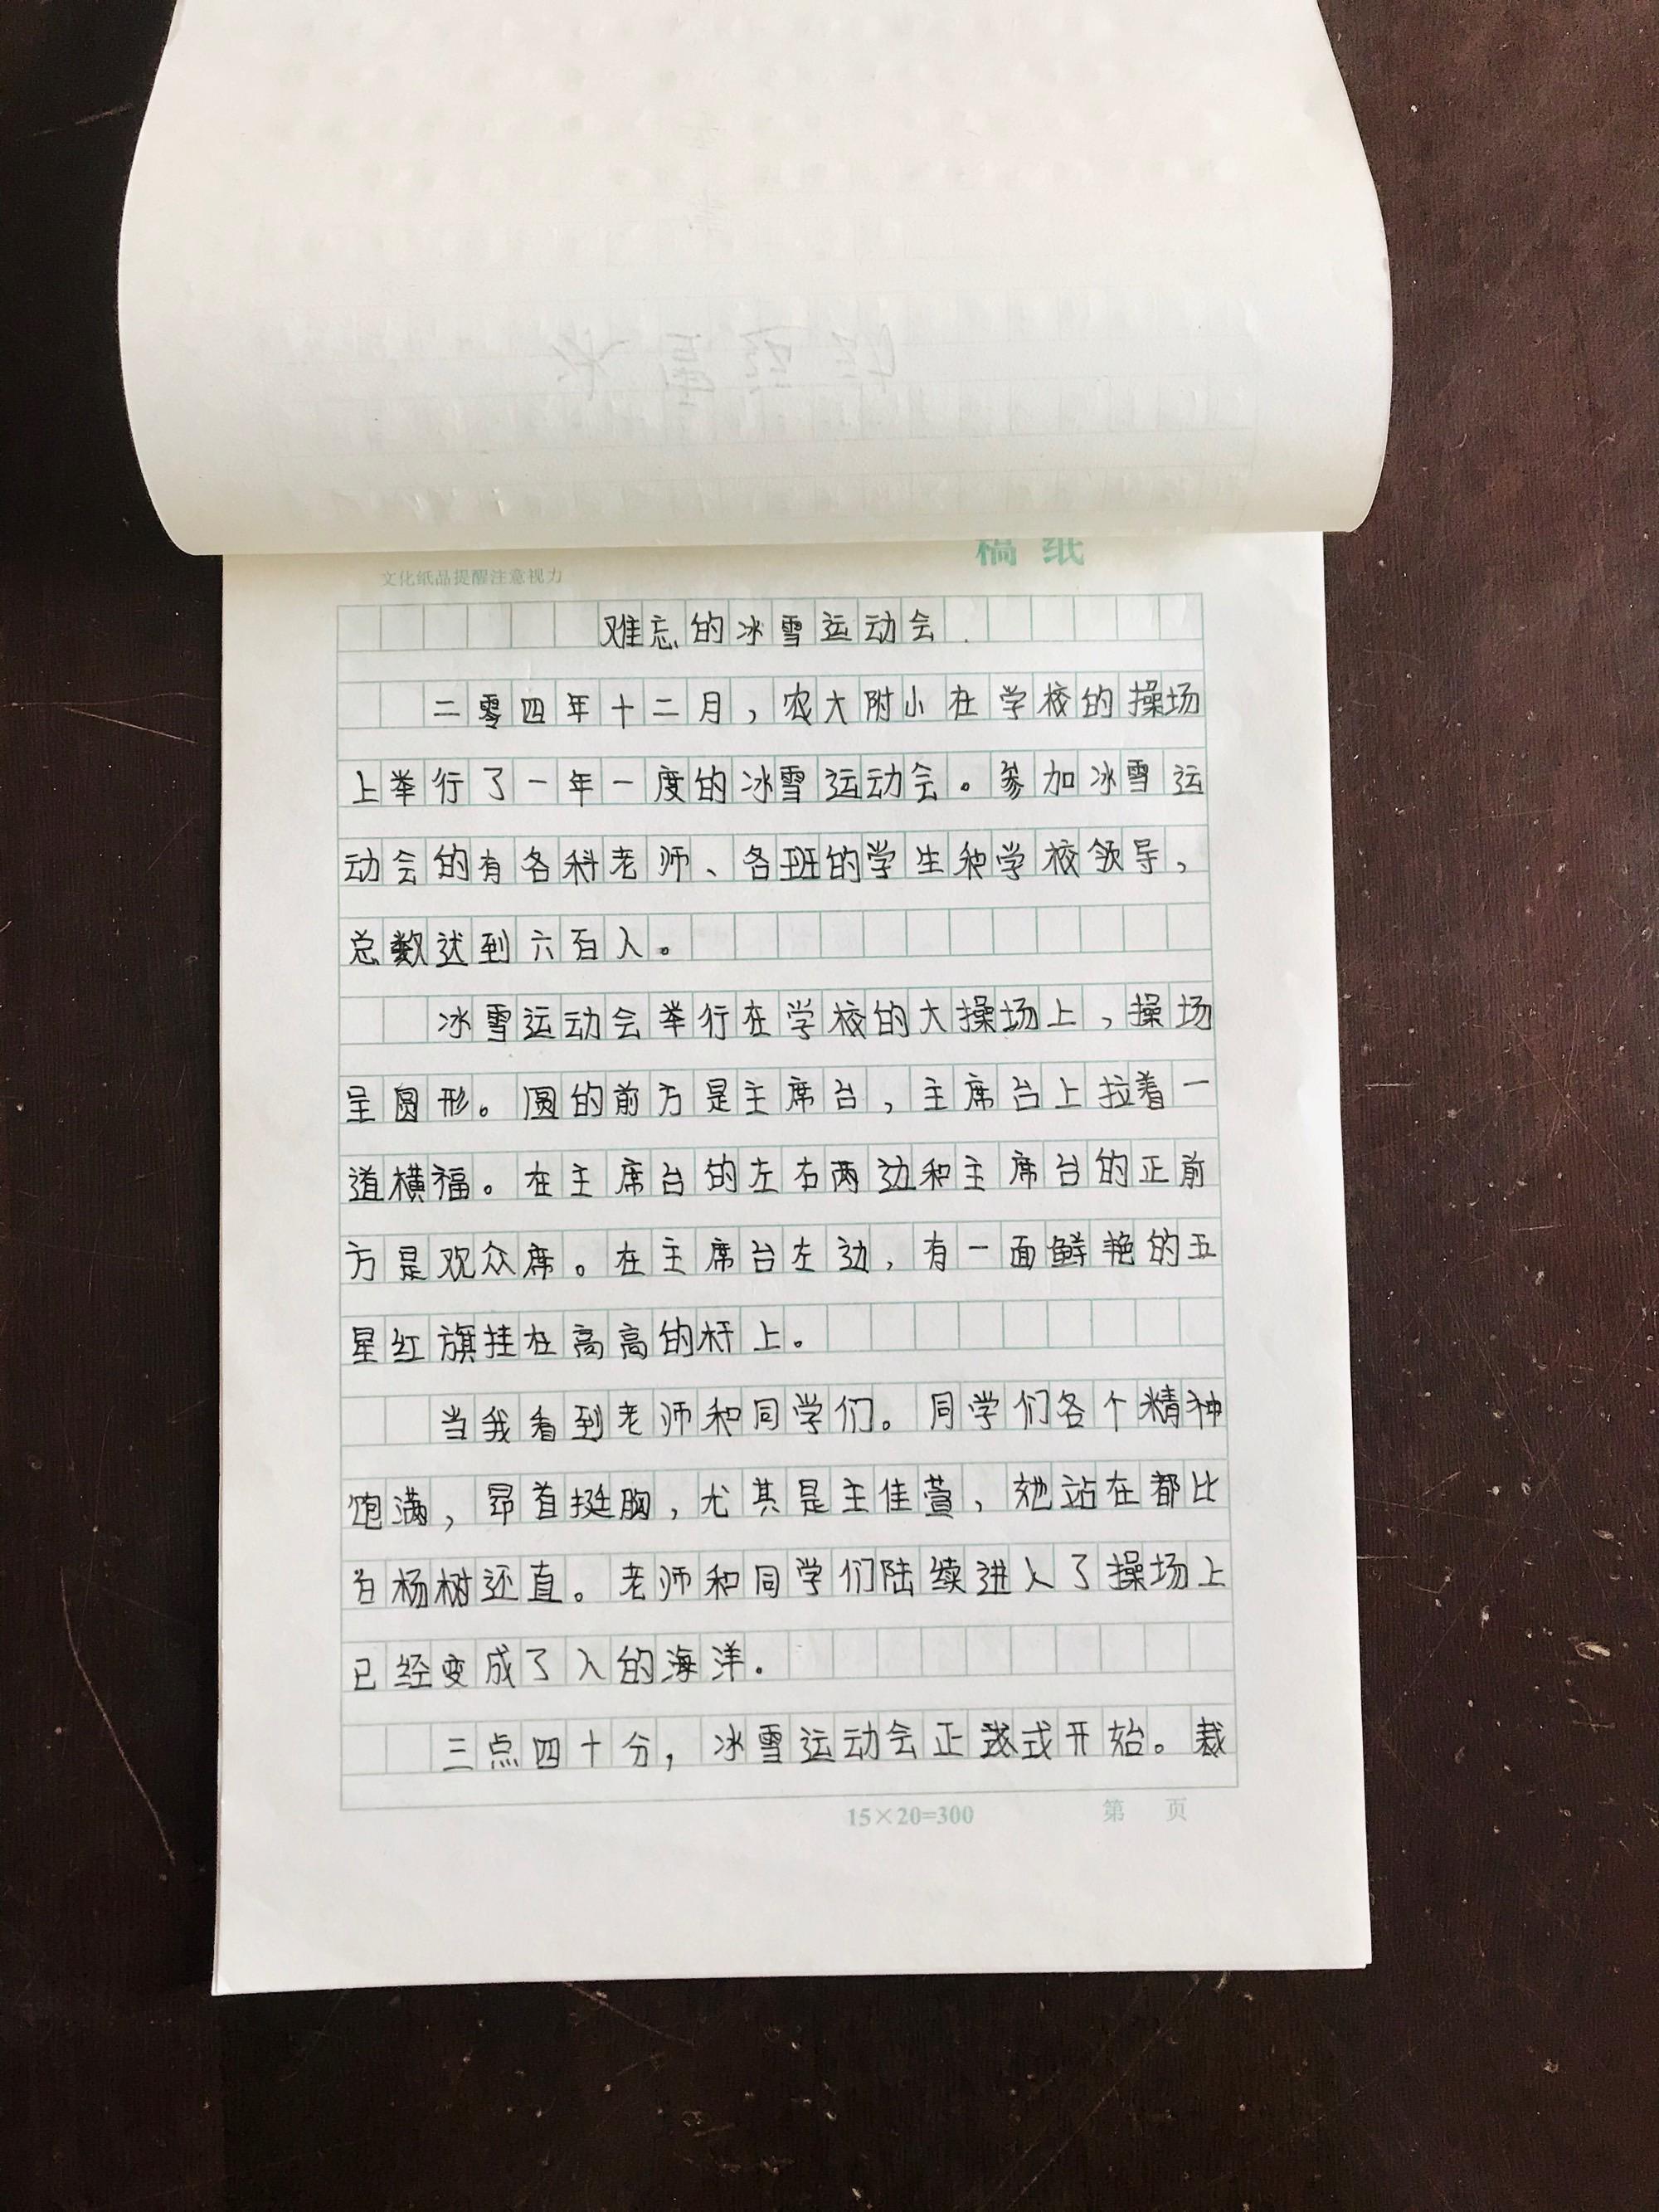 稿纸
文化纸品提醒注意视力
难忘的冰雪运动会
二零四年十二月，农大附小在学校的操场
上举行了一年一度的冰雪运动会。参加冰雪运
动会的有各科老师、各班的学生和学校领导，
总数达到六百人。
冰雪运动会举行在学校的大操场上，操场
呈圆形。圆的前方是主席台，主席台上拉着一
道横福。在主席台的左右两边和主席台的正前
方是观众席。在主席台左边，有一面鲜艳的五
星红旗挂在高高的杆上。
当我看到老师和同学们。同学们各个精神
饱满，昂首挺胸，尤其是主佳萱，她站在都比
白杨树还直。老师和同学们陆续进入了操场上
已经变成了人的海洋。
三点四十分，冰雪运动会正式开始。裁
15×20=300 第 页